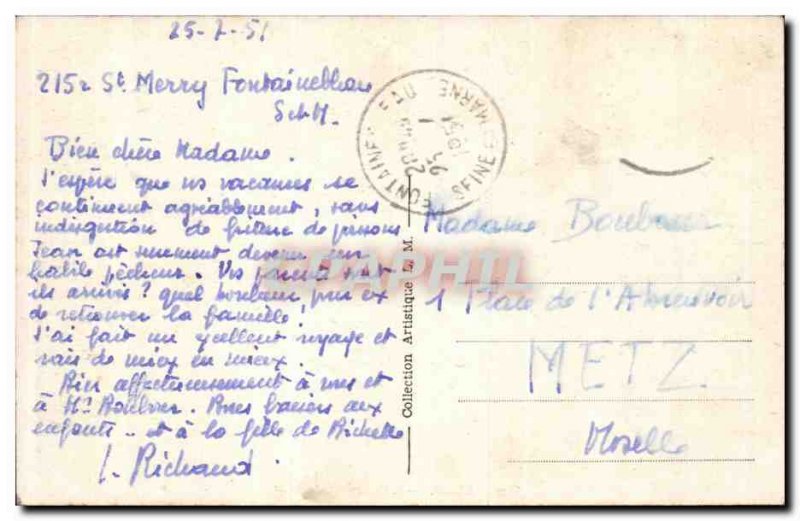 25-7-51
215 r St Merry Fontainebleau
S et M.
Bien chère Madame.
J'espère que vos vacances se
continuent agréablement, sans
indigestion de friture de poissons
Jean est surement devenu un
habile pêcheur. Vos parents sont
ils arrivés? quel bonheur pour eux
de retrouver la famille!
J'ai fait un excellent voyage et
vais de mieux en mieux.
Bien affectueusement à vous et
à Mr. Bons baisers aux
enfants - et à la fille de
Richard
FONTAINEBLEAU
SEINE ET MARNE
1951
Collection Artistique L. M.
CPAPHIL
Madame
1 Place de l'Abreuvoir
METZ
Moselle